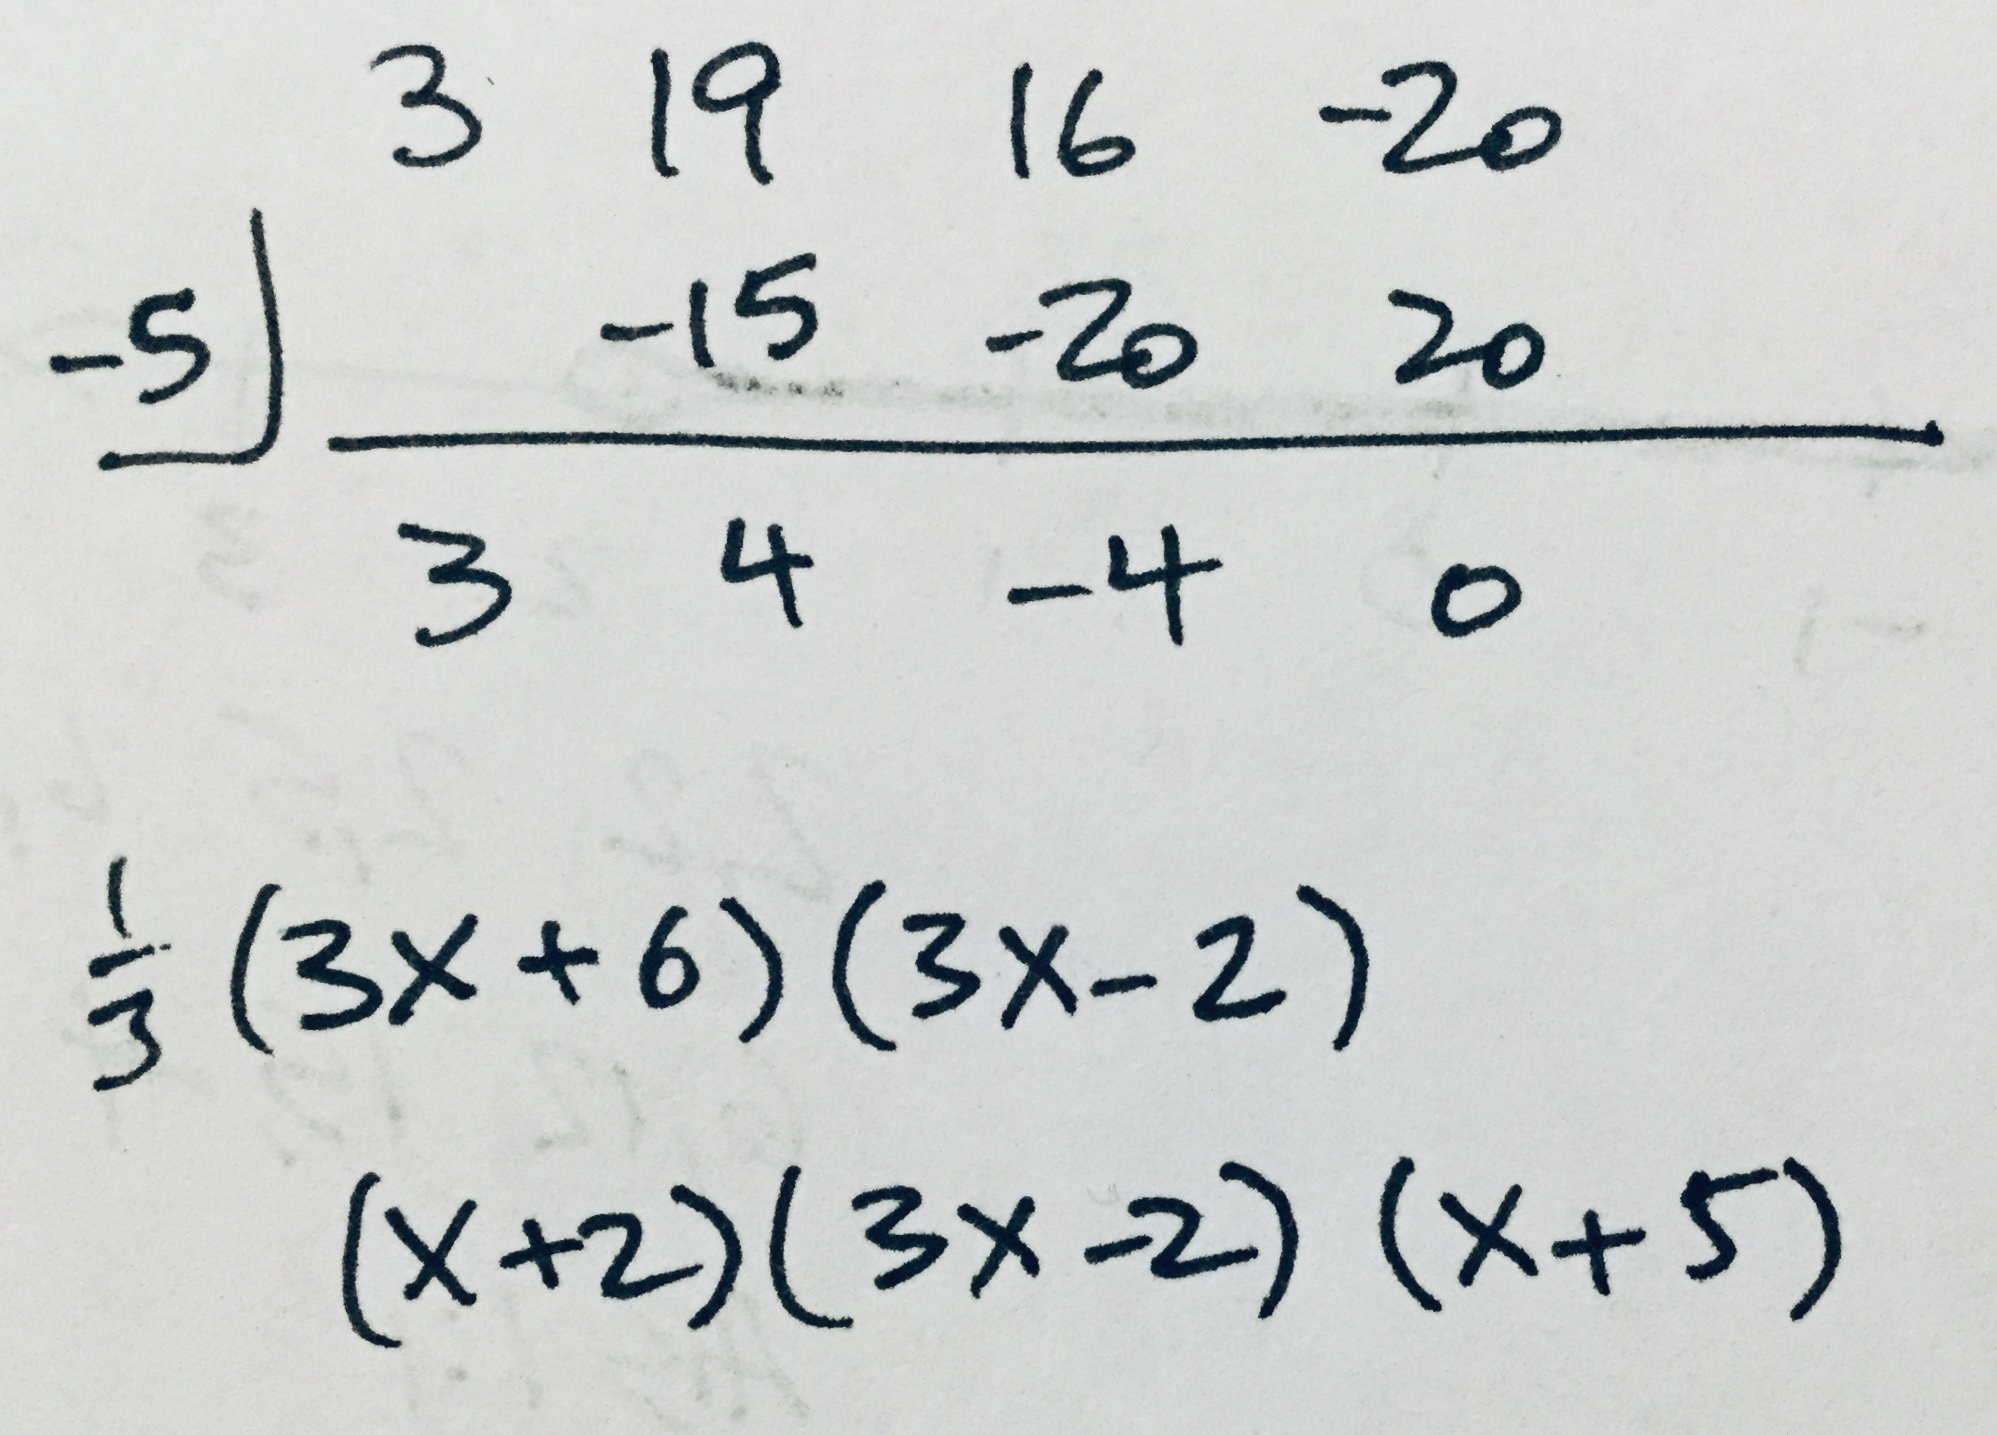 3 19 16 -20
-5 -15 -20 20
3 4 -4 0
1/3 (3x + 6)(3x - 2)
(x + 2)(3x - 2) (x + 5)